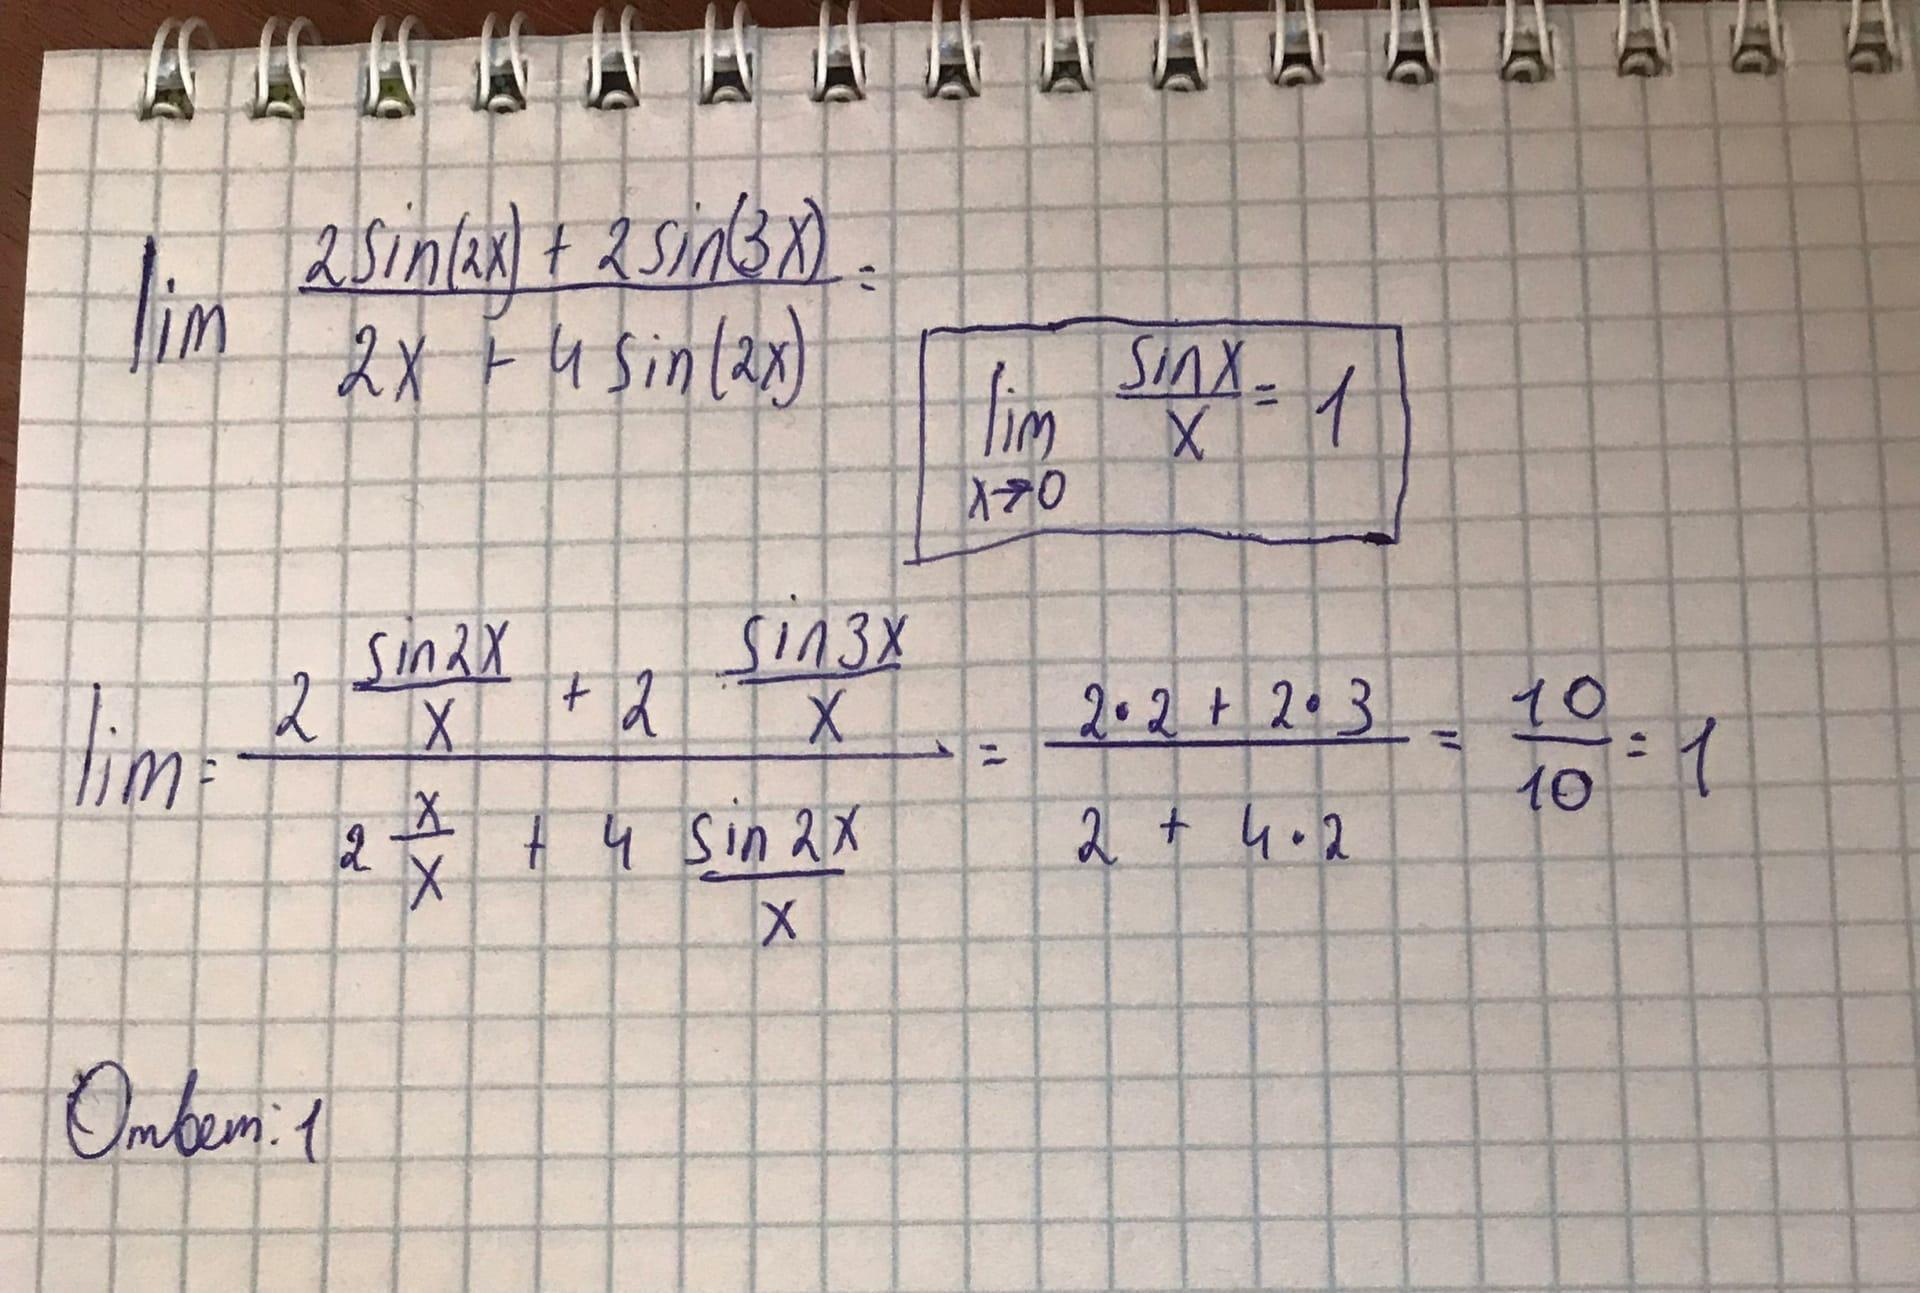 lim (2sin(2x) + 2sin(3x)) / (2x + 4sin(2x)) =
lim x→0 sinx/x = 1
lim = (2 sin2x/x + 2 sin3x/x) / (2 x/x + 4 sin2x/x) = (2·2 + 2·3) / (2 + 4·2) = 10/10 = 1
Ответ: 1